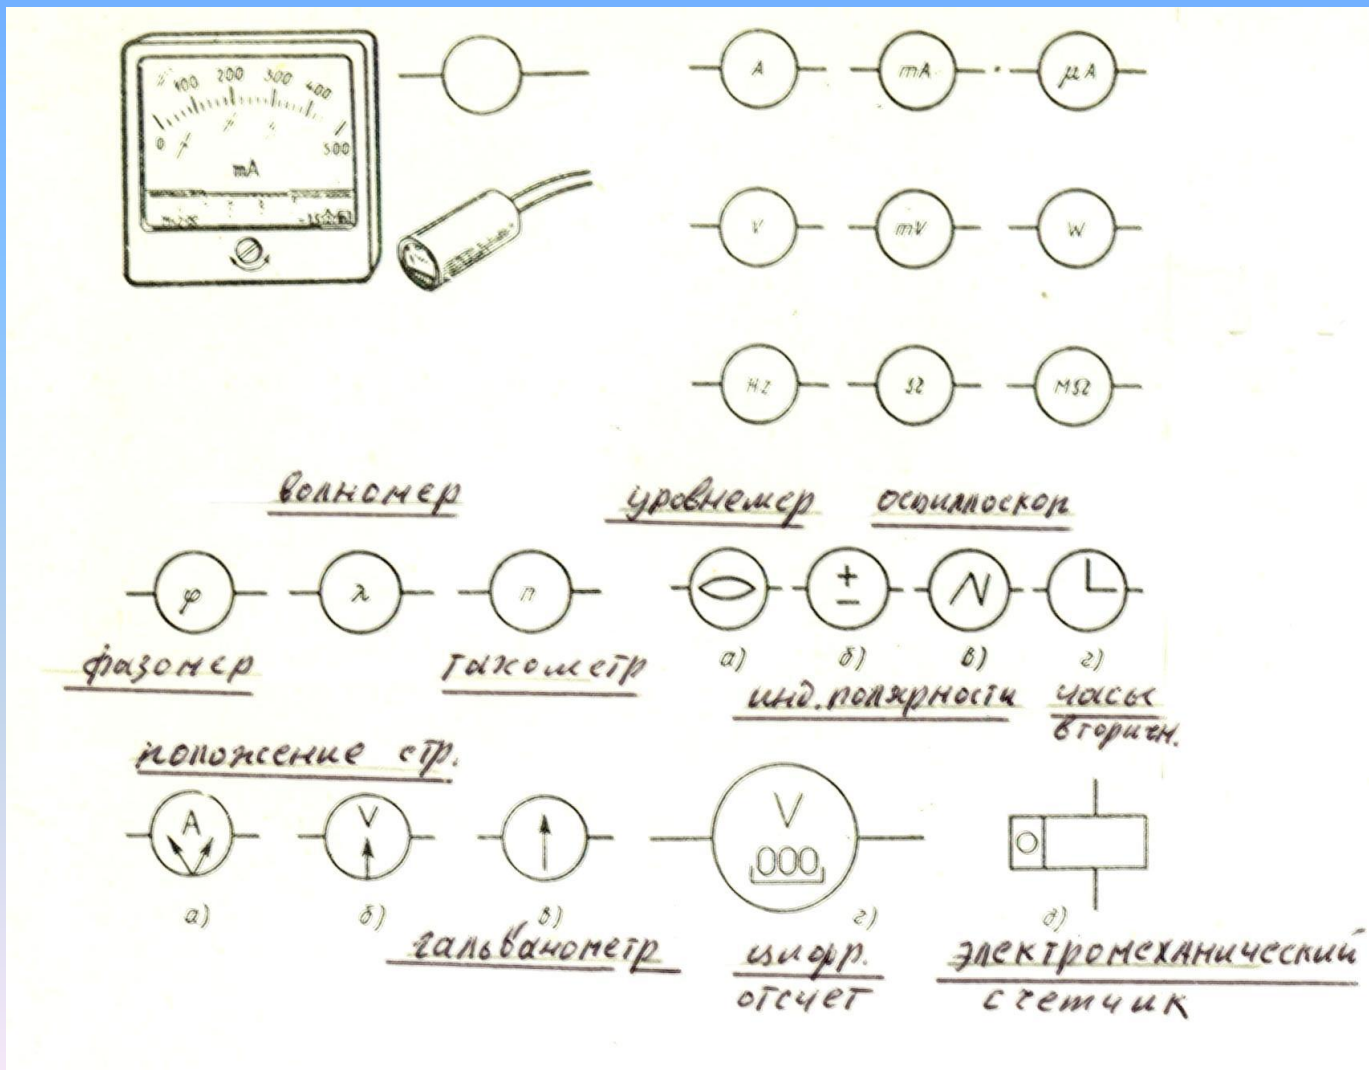 0 100 200 300 400 500
mA
A mA μA
V mV W
Hz Ω MΩ
волномер уровнемер осциллоскоп
φ λ n + −
а) б) в) г)
фазомер тахометр инд. полярности часы
вторичн.
положение стр.
A V V
000
а) б) в) г) д)
гальванометр цифр. электромеханический
отсчет счетчик